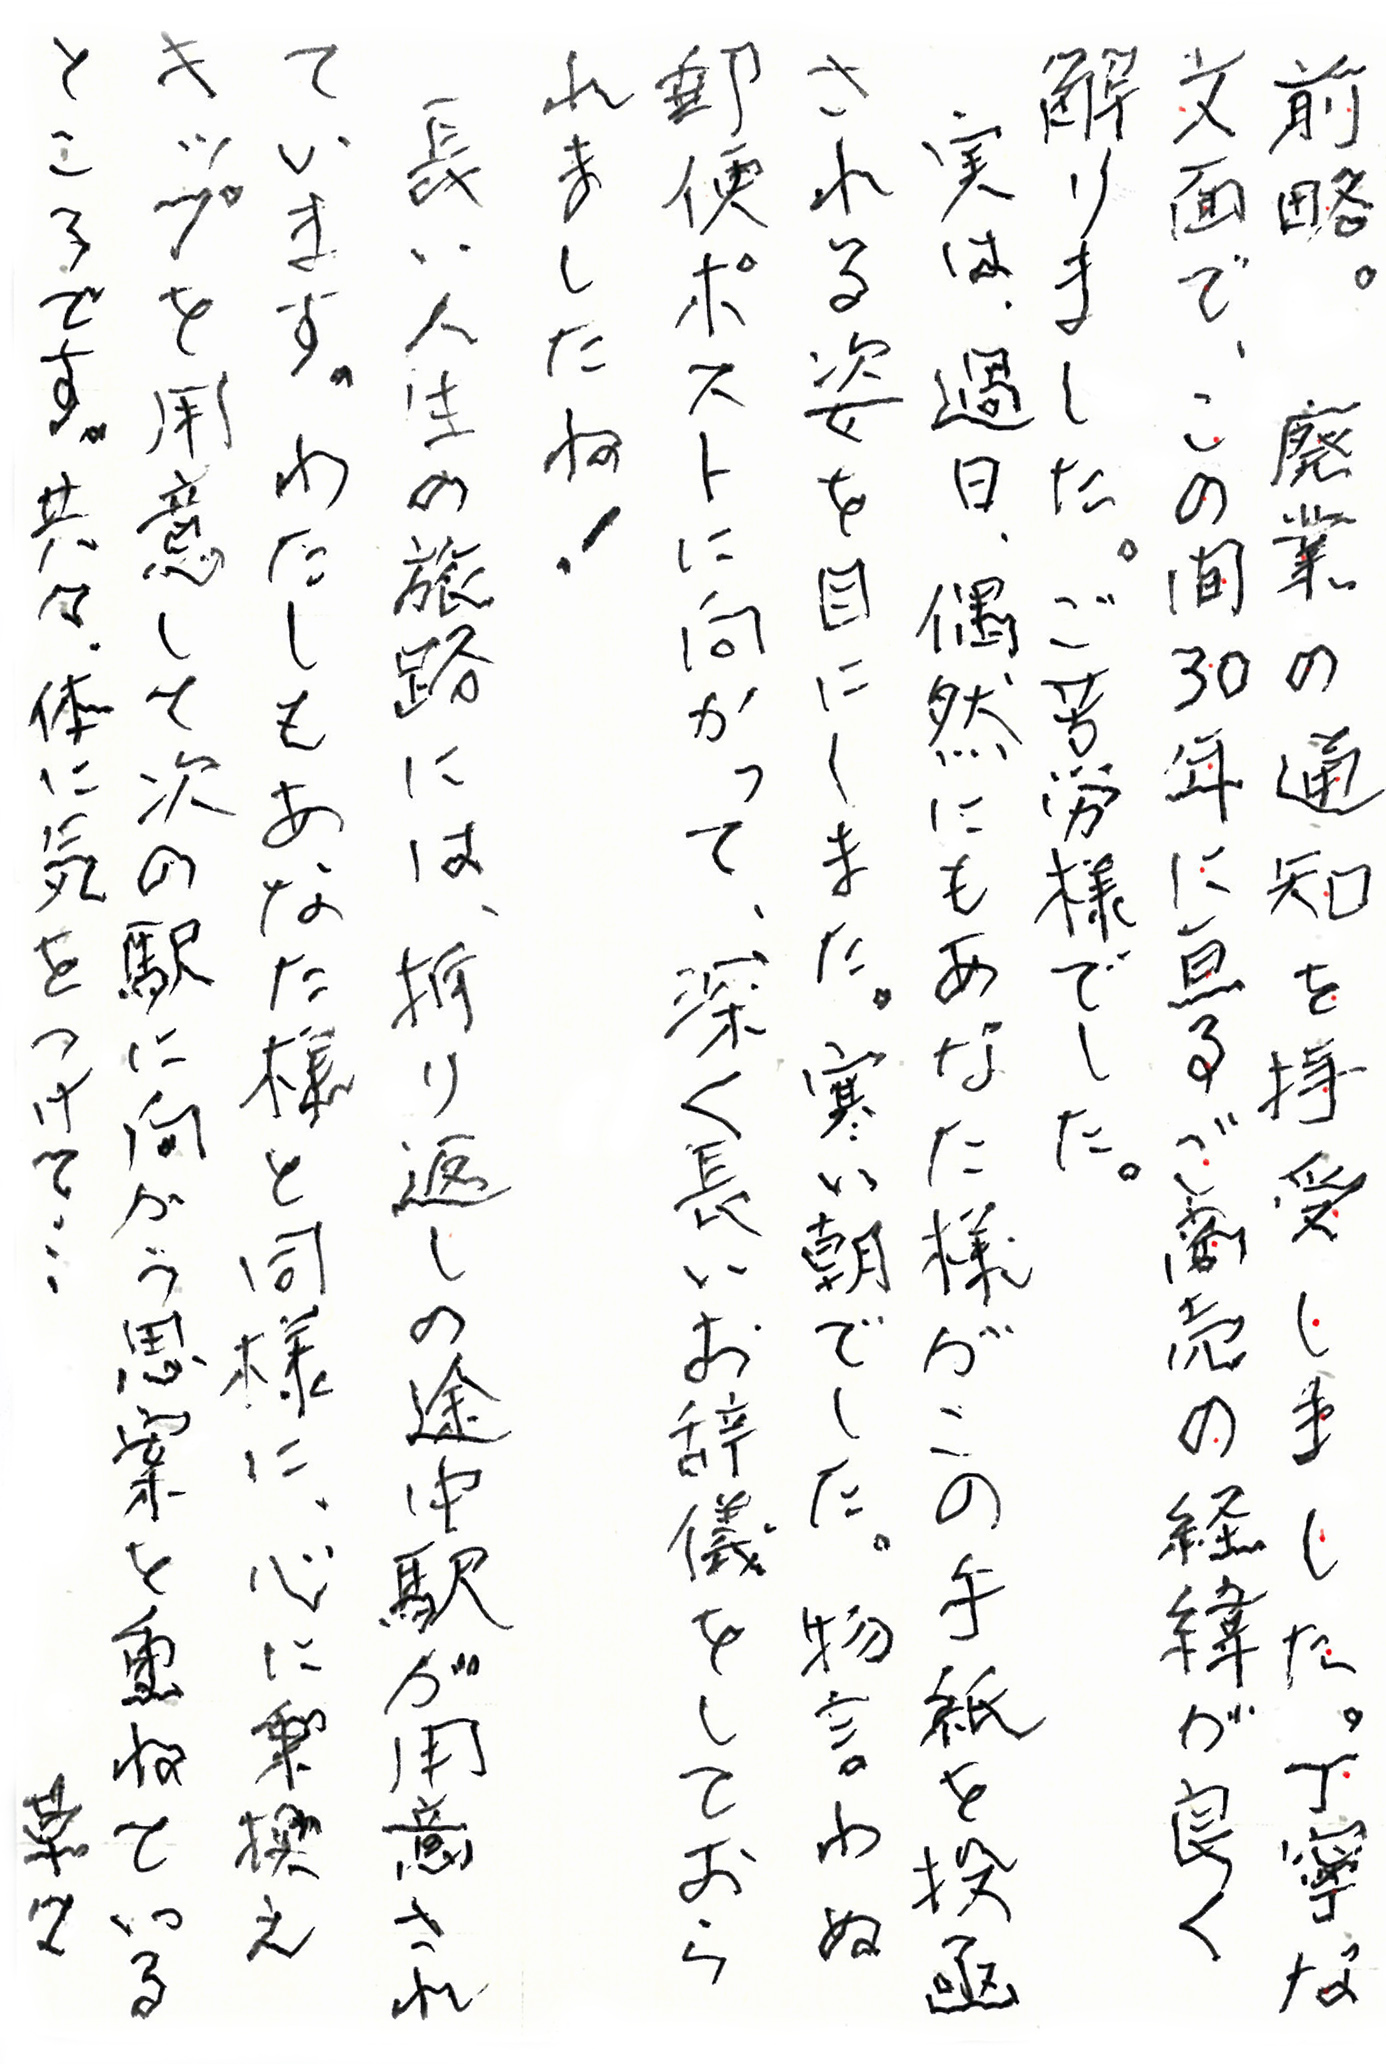 前略。 廃業の通知を拝受しました。丁寧な
文面で、この間30年に亘るご商売の経緯が良く
解りました。ご苦労様でした。
実は、過日、偶然にもあなた様がこの手紙を投函
される姿を目にしました。寒い朝でした。物言わぬ
郵便ポストに向かって、深く長いお辞儀をしておら
れましたね!
長い人生の旅路には、折り返しの途中駅が用意され
ています。わたしもあなた様と同様に、心に乗換え
キップを用意して次の駅に向かう思案を重ねている
ところです。共々、体に気をつけて…
草々